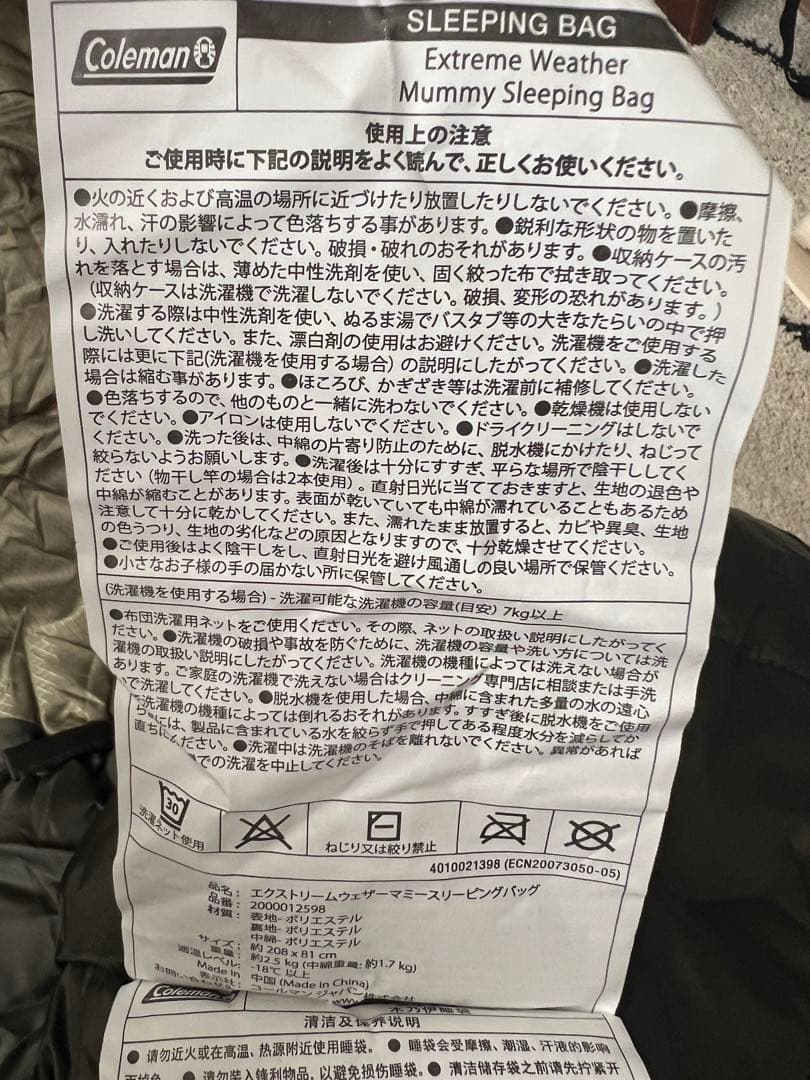 Coleman
SLEEPING BAG
Extreme Weather
Mummy Sleeping Bag
使用上の注意
ご使用時に下記の説明をよく読んで、正しくお使いください。
●火の近くおよび高温の場所に近づけたり放置したりしないでください。●摩擦、
水濡れ、汗の影響によって色落ちする事があります。●鋭利な形状の物を置いた
り、入れたりしないでください。破損・破れのおそれがあります。●収納ケースの汚
れを落とす場合は、薄めた中性洗剤を使い、固く絞った布で拭き取ってください。
(収納ケースは洗濯機で洗濯しないでください。破損、変形の恐れがあります。)
●洗濯する際は中性洗剤を使い、ぬるま湯でバスタブ等の大きなたらいの中で押
し洗いしてください。また、漂白剤の使用はお避けください。洗濯機をご使用する
際には更に下記(洗濯機を使用する場合)の説明にしたがってください。●洗濯した
場合は縮む事があります。●ほころび、かぎざき等は洗濯前に補修してください。
●色落ちするので、他のものと一緒に洗わないでください。●乾燥機は使用しない
でください。●アイロンは使用しないでください。●ドライクリーニングはしないで
ください。●洗った後は、中綿の片寄り防止のために、脱水機にかけたり、ねじって
絞らないようお願いします。●洗濯後は十分にすすぎ、平らな場所で陰干ししてく
ださい(物干し竿の場合は2本使用)。直射日光に当てておきますと、生地の退色や
中綿が縮むことがあります。表面が乾いていても中綿が濡れていることもあるため
注意して十分に乾かしてください。また、濡れたまま放置すると、カビや異臭、生地
の色うつり、生地の劣化などの原因となりますので、十分乾燥させてください。
●ご使用後はよく陰干しをし、直射日光を避け風通しの良い場所で保管ください。
●小さなお子様の手の届かない所に保管してください。
(洗濯機を使用する場合) - 洗濯可能な洗濯機の容量(目安) 7kg以上
●布団洗濯用ネットをご使用ください。その際、ネットの取扱い説明にしたがってく
ださい。●洗濯機の破損や事故を防ぐために、洗濯機の容量や洗い方については洗
濯機の取扱い説明にしたがってください。洗濯機の機種によっては洗えない場合が
あります。ご家庭の洗濯機で洗えない場合はクリーニング専門店に相談または手洗
いで洗濯してください。●脱水機を使用した場合、中綿に含まれた多量の水の遠心
洗濯機の機種によっては倒れるおそれがあります。すすぎ後に脱水機をご使用
には、製品に含まれている水を絞らず手で押してある程度水分を減らしてか
ください。●洗濯中は洗濯機のそばを離れないでください。異常があれば
直ちに
での洗濯を中止してください。
30
洗濯ネット使用
ねじり又は絞り禁止
4010021398 (ECN20073050-05)
品名: エクストリームウェザーマミースリーピングバッグ
品番: 2000012598
材質: 表地- ポリエステル
裏地- ポリエステル
中綿- ポリエステル
サイズ: 約 208 x 81 cm
重量: 約2.5 kg (中綿重量: 約1.7 kg)
適温レベル: -18℃ 以上
Made in 中国 (Made in China)
表示社: コールマン ジャパン株式会社
お問い合わせ
www.
Coleman
木乃伊睡袋
清洁及保养说明
● 请勿近火或在高温, 热源附近使用睡袋。 ● 睡袋会受摩擦, 潮湿, 汗液的影响
● 请勿装入锋利物品, 以避免损伤睡袋。● 清洁储存袋之前请先拧紧开